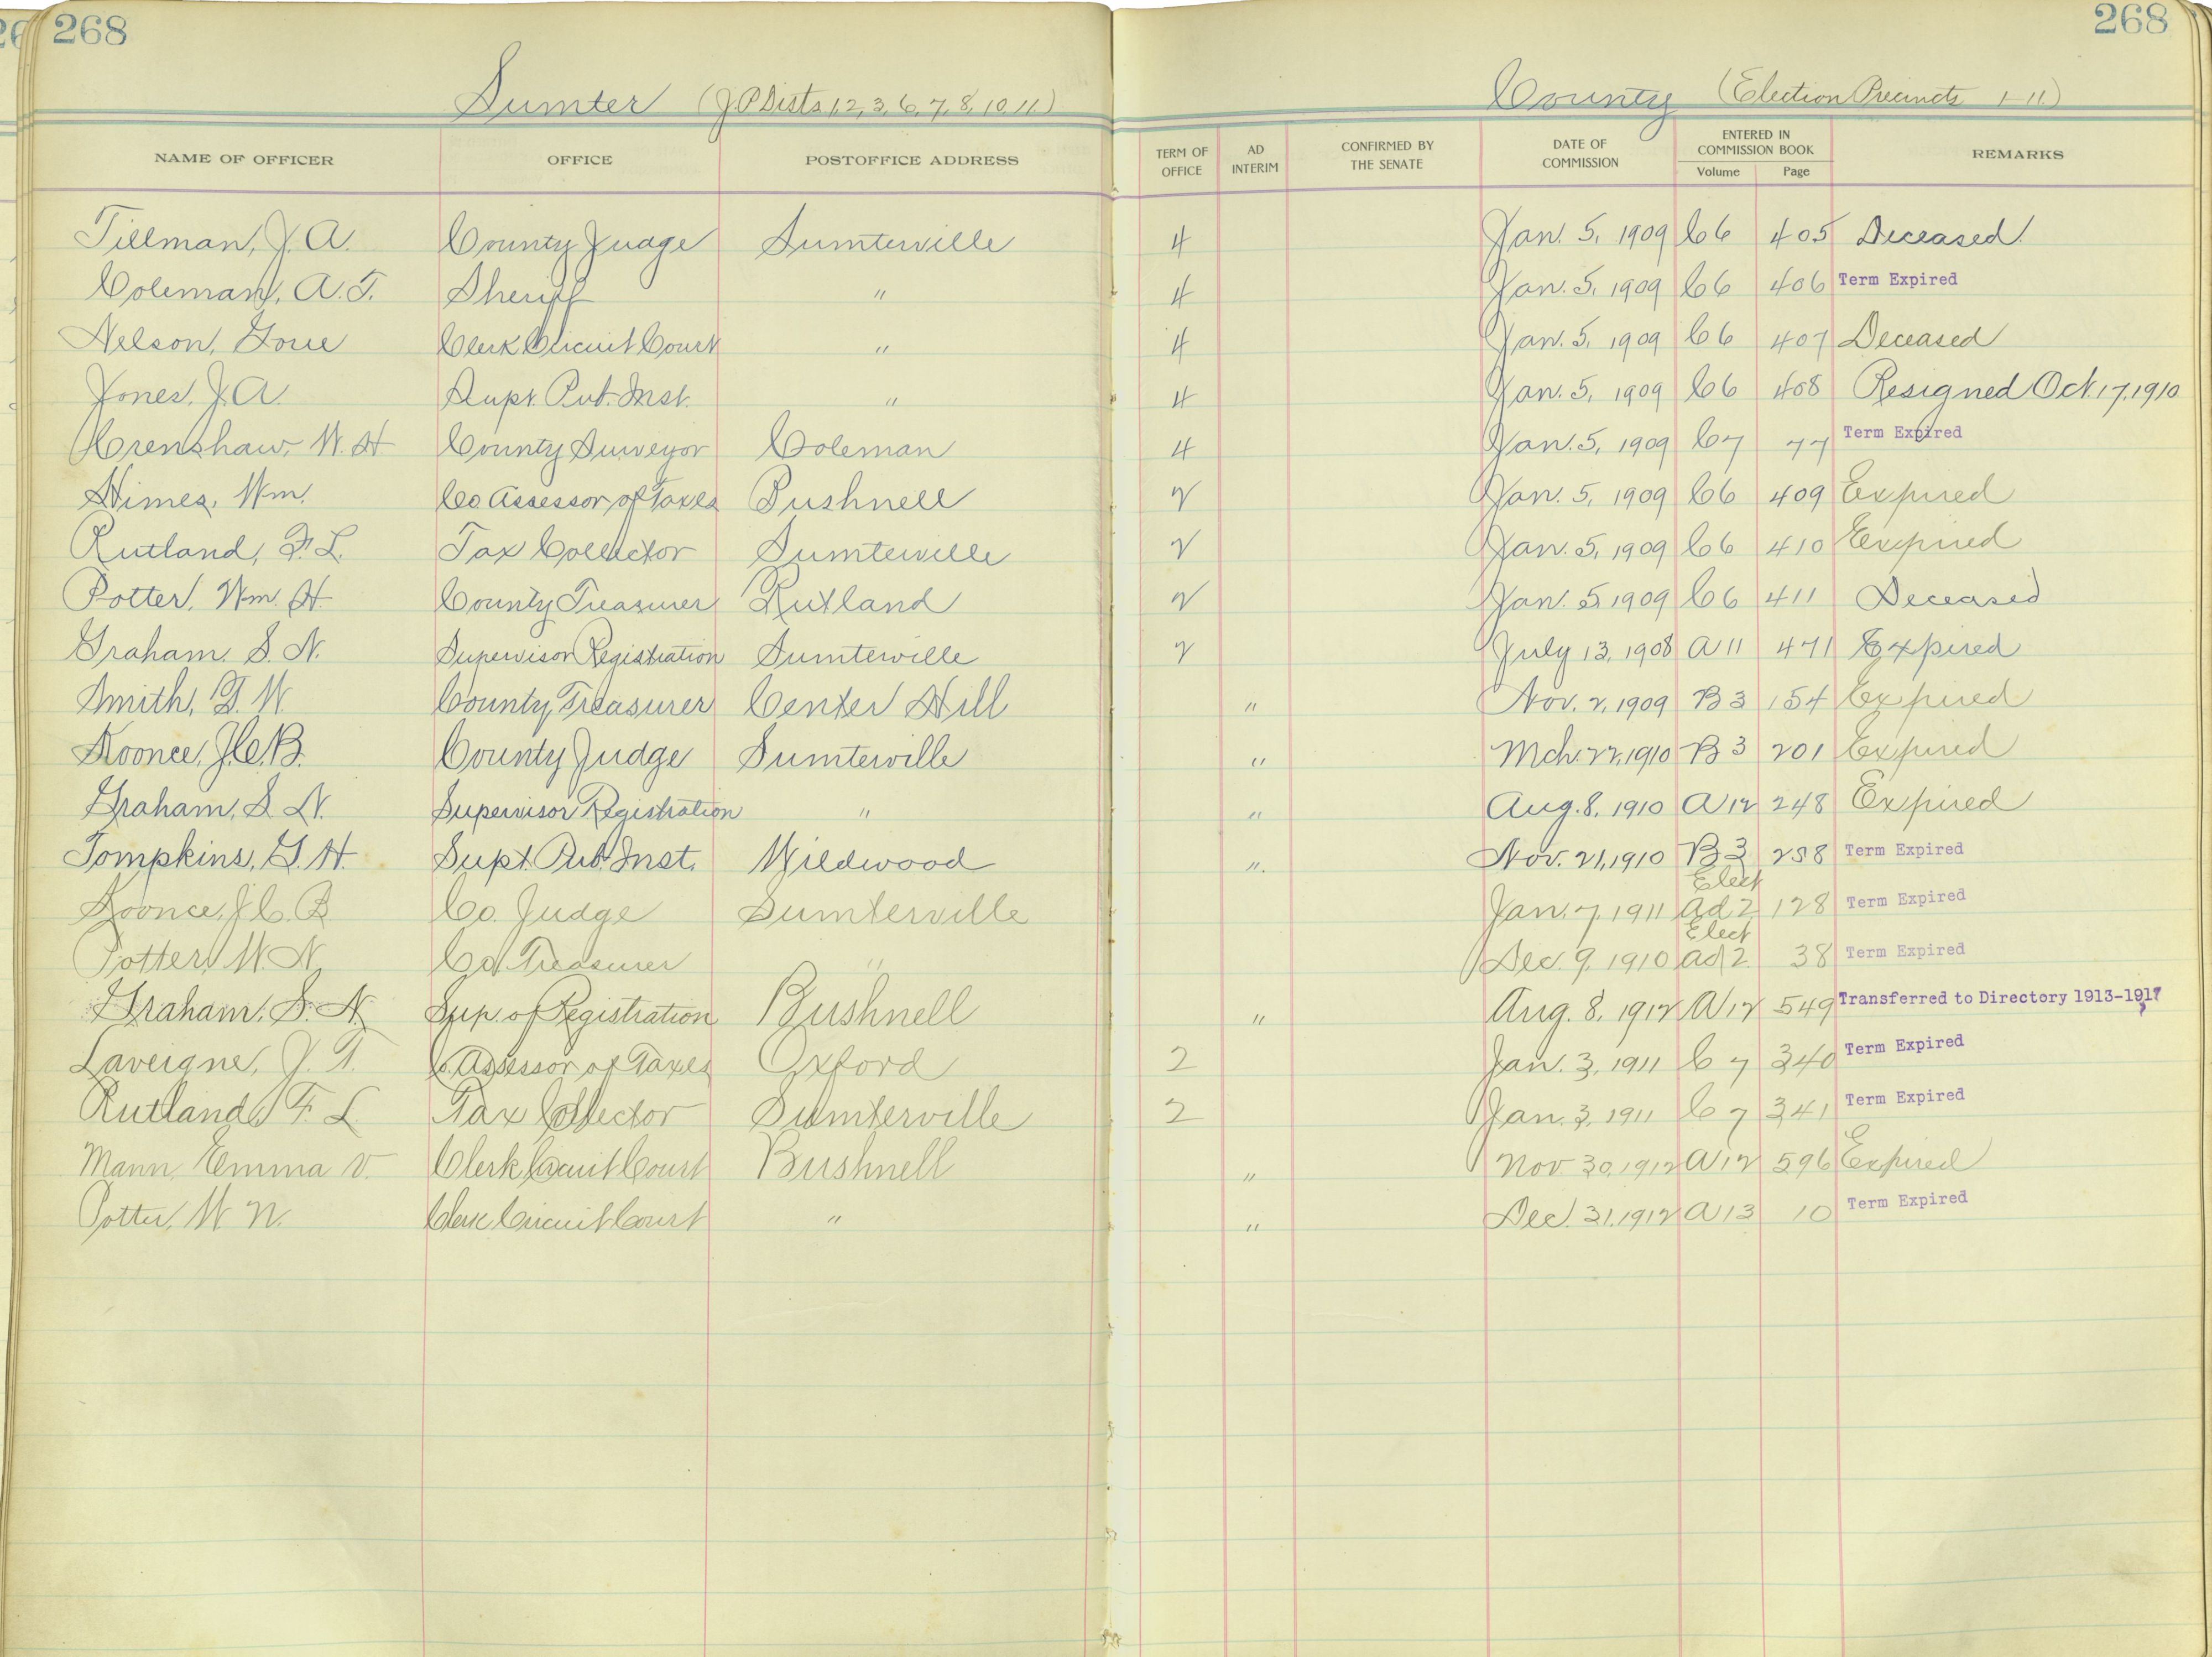 268 268
Sumter (J.P. Dists 1, 2, 3, 6, 7, 8, 10, 11.) County (Election Precincts 1-11.)
NAME OF OFFICER OFFICE POSTOFFICE ADDRESS TERM OF OFFICE AD INTERIM CONFIRMED BY THE SENATE DATE OF COMMISSION ENTERED IN COMMISSION BOOK Volume Page REMARKS
Tillman, J. A. County Judge Sumterville 4 Jan. 5, 1909 C 6 405 Deceased.
Coleman, A. T. Sheriff " 4 Jan. 5, 1909 C 6 406 Term Expired
Nelson, Clerk Circuit Court " 4 Jan. 5, 1909 C 6 407 Deceased
Jones, J. A. Supt. Pub. Inst. " 4 Jan. 5, 1909 C 6 408 Resigned Oct. 17, 1910
Crenshaw, W. H. County Surveyor Coleman 4 Jan. 5, 1909 C 7 77 Term Expired
Himes, Wm. Co Assessor of Taxes Bushnell 2 Jan. 5, 1909 C 6 409 Expired
Rutland, F. L. Tax Collector Sumterville 2 Jan. 5, 1909 C 6 410 Expired
Potter, Wm. H. County Treasurer Rutland 2 Jan. 5 1909 C 6 411 Deceased
Graham, S. N. Supervisor Registration Sumterville 2 July 13, 1908 A 11 471 Expired
Smith, G. W. County Treasurer Center Hill " Nov. 2, 1909 B 3 154 Expired
Koonce, J. C. B. County Judge Sumterville " Mch. 22, 1910 B 3 201 Expired
Graham, S. N. Supervisor Registration " " Aug. 8, 1910 A 12 248 Expired
Tompkins, G. H. Supt. Pub. Inst. Wildwood " Nov. 21, 1910 B 3 258 Term Expired
Koonce, J. C. B Co. Judge Sumterville Jan. 7, 1911 Elect ad 2 128 Term Expired
Potter, W. N. Co. Treasurer " Dec. 9, 1910 Elect ad 2. 38 Term Expired
Graham, S. N. Sup. of Registration Bushnell " Aug. 8, 1912 A 12 549 Transferred to Directory 1913-1917
Laveigne, J. T. C. Assessor of Taxes Oxford 2 Jan. 3, 1911 C 7 340 Term Expired
Rutland, F. L. Tax Collector Sumterville 2 Jan. 3, 1911 C 7 341 Term Expired
Mann, Emma V. Clerk Circuit Court Bushnell " Nov 30, 1912 A 12 596 Expired
Potter, W. N. Clerk Circuit Court " " Dec. 31, 1912 A 13 10 Term Expired